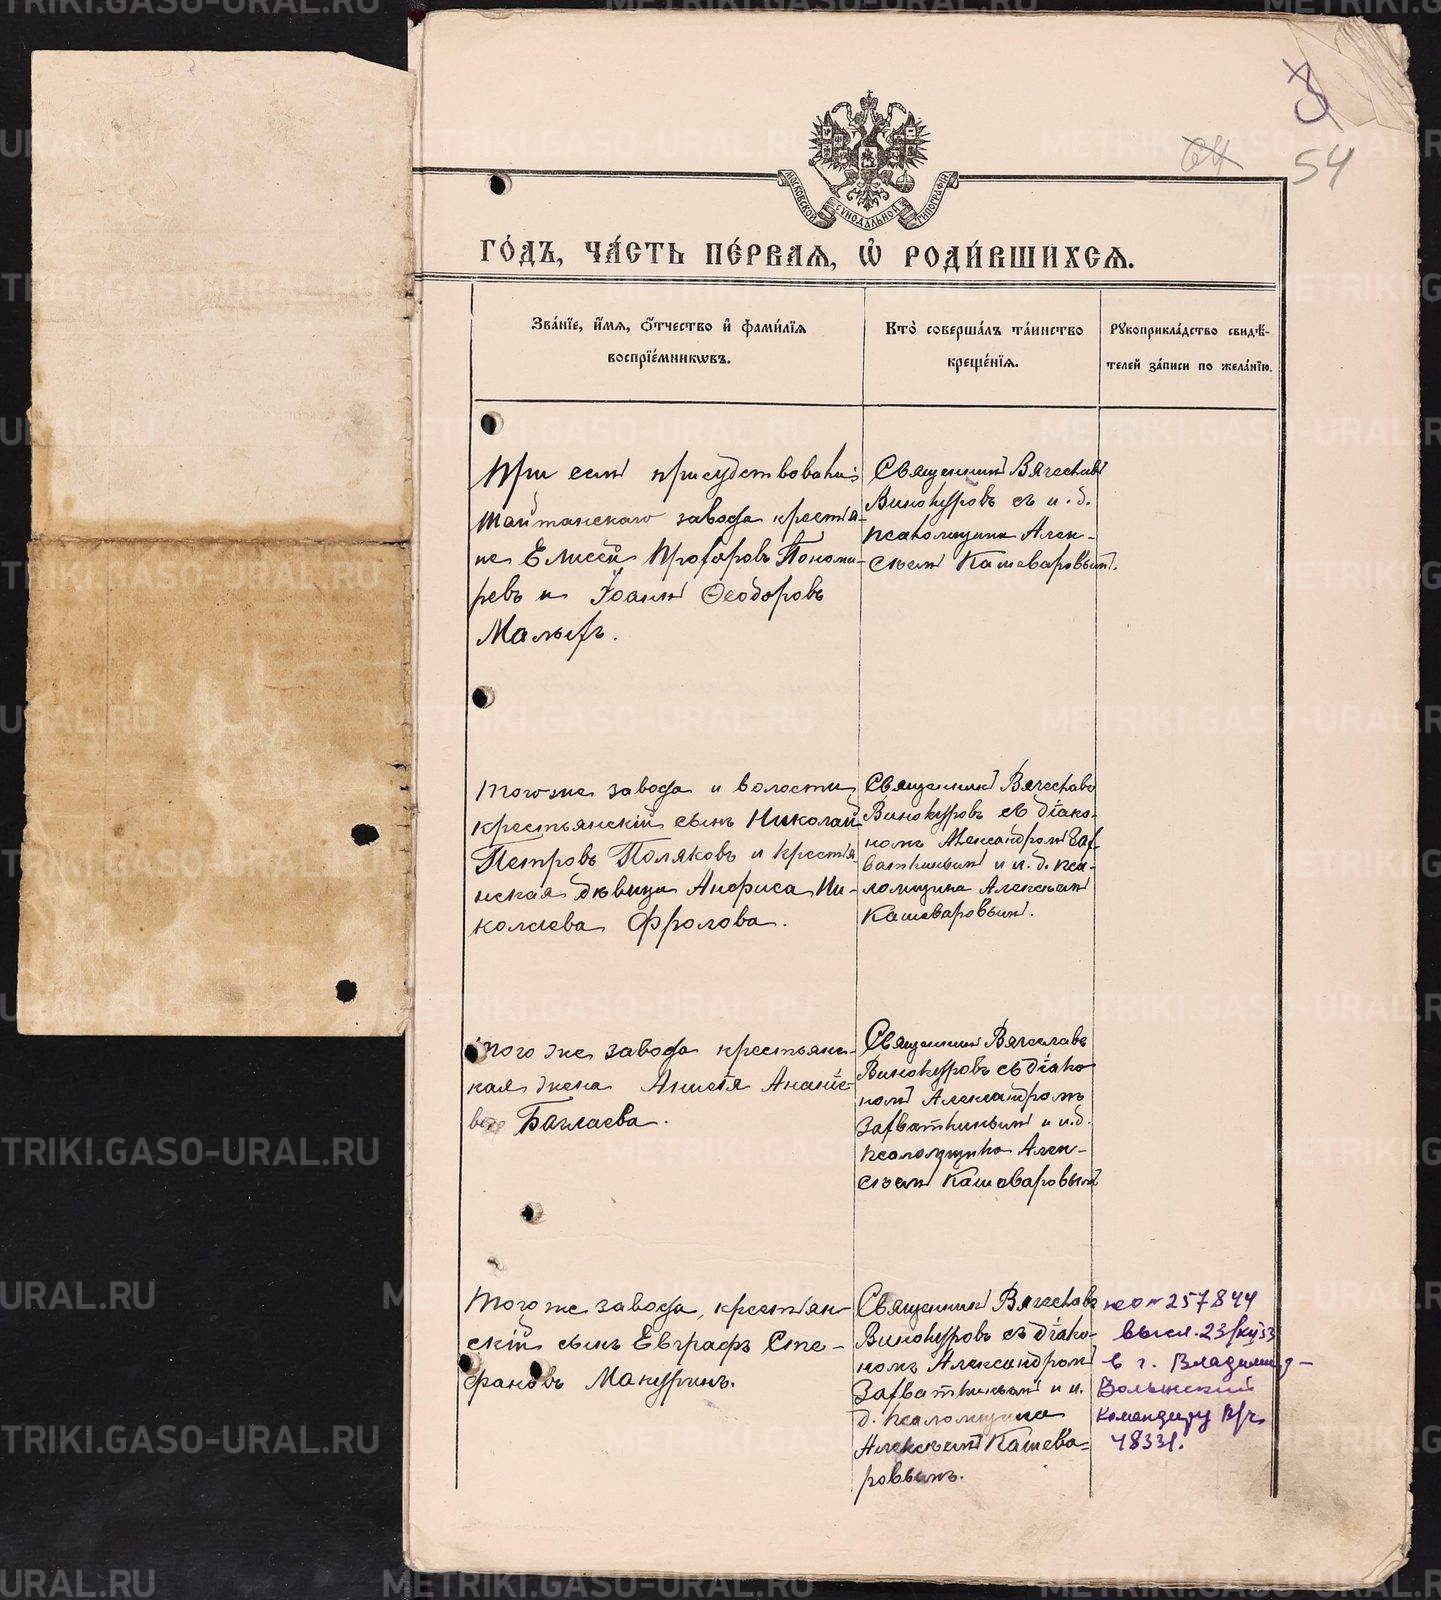 3
64
54
МОСКОВСКОЙ СѴНОДАЛЬНОЙ ТИПОГРАФІИ
ГО́ДЪ, ЧА́СТЬ ПЕ́РВАѦ, Ѡ҆ РОДИ́ВШИХСѦ.
Зва́нїе, и҆́мѧ, ѻ҆́тчество и҆ фами́лїѧ
воспрїе́мникωвъ.
Кто̀ соверша́лъ та́инство
креще́нїѧ.
Рꙋкоприкла́дство свидѣ́-
телей за́писи по жела́нїю.
При семъ присудствовали:
Шайтанскаго завода крестья-
не Елисей Прохоровъ Понома-
ревъ и Іоаннъ Ѳеодоровъ
Малыхъ.
Священникъ Вячеславъ
Винокуровъ съ и. д.
псаломщика Алек-
сѣемъ Кашеваровымъ.
Того же завода и волости
крестьянскій сынъ Николай
Петровъ Поляковъ и крестья-
нская дѣвица Анфиса Ни-
колаева Фролова.
Священникъ Вячеславъ
Винокуровъ съ діако-
номъ Александромъ Зах-
ваткинымъ и и. д. пса-
ломщика Алексѣемъ
Кашеваровымъ.
Того же завода крестьянс-
кая жена Анисія Ананіе-
ва Баглаева.
Священникъ Вячеславъ
Винокуровъ съ діако-
номъ Александромъ
Захваткинымъ и и.д.
псаломщика Алек-
сѣемъ Кашеваровымъ
Того же завода, крестьян-
скій сынъ Евграфъ Сте-
фановъ Макуринъ.
Священникъ Вячеславъ
Винокуровъ съ діако-
номъ Александромъ
Захваткинымъ и и.
д. псаломщика
Алексѣемъ Кашева-
ровымъ.
№ 257844
высл. 23/XII 33
в г. Владимир-
Волынский
командиру В/ч
48331.
METRIKI.GASO-URAL.RU